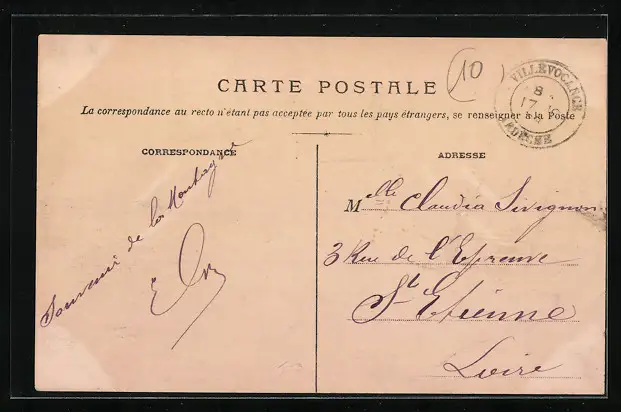 CARTE POSTALE
(10)
VILLEVOCANCE
8
17
ARDECHE
La correspondance au recto n'étant pas acceptée par tous les pays étrangers, se renseigner à la Poste
CORRESPONDANCE
ADRESSE
Souvenir de la Montagne
Melle Claudia Sivignon
3 Rue de l'Epreuve
St Etienne
Loire